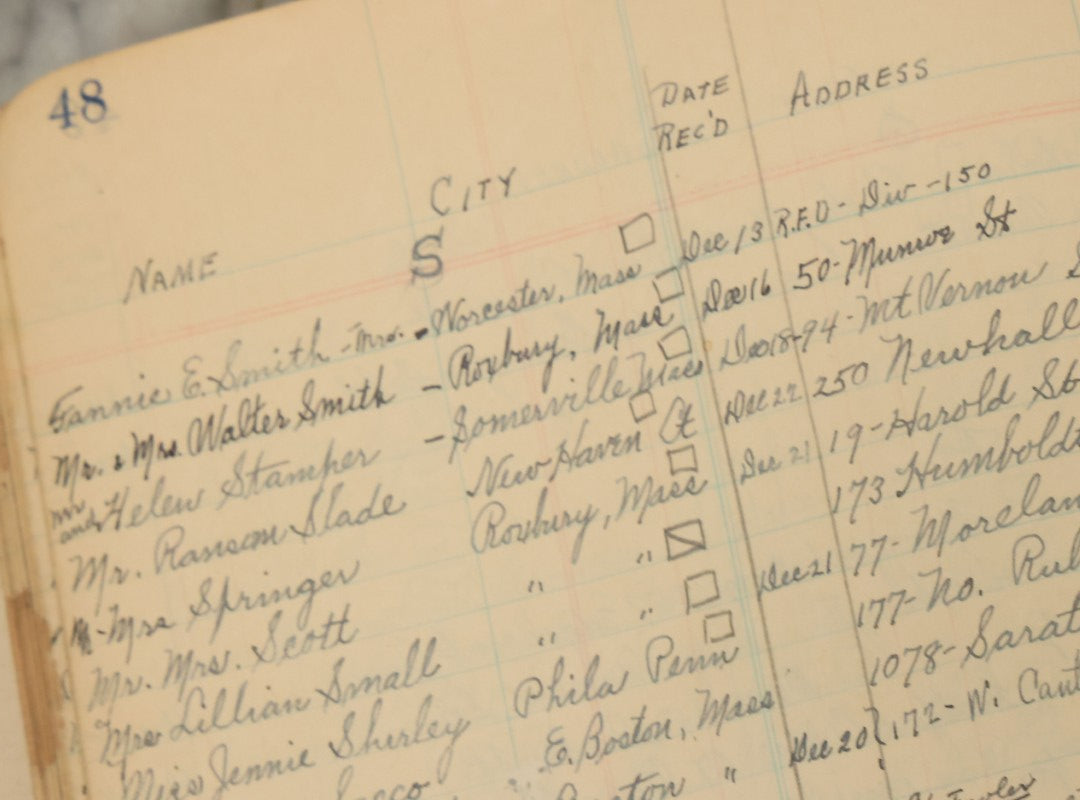 48
DATE
REC'D
ADDRESS
CITY
NAME
S
Fannie E. Smith - Mrs. - Worcester, Mass Dec 13 R.F.D - Div - 150
Mr. & Mrs. Walter Smith - Roxbury, Mass Dec 16 50 - Munroe St
Mr and Helen Stamper - Somerville Mass Dec 18 - 94 - Mt Vernon
Mr. Ransom Slade New Haven Ct Dec 22 250 Newhall
Mrs Springer Roxbury, Mass Dec 21 19 - Harold St
Mr. Mrs. Scott " " 173 Humboldt
Mrs Lillian Small " " Dec 21 77 - Morelan
Miss Jennie Shirley Phila Penn 177 - No.
E. Boston, Mass 1078 - Sarat
" Dec 20 172 - W.